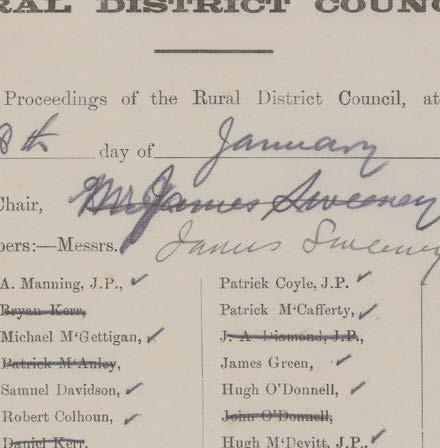 RAL DISTRICT COUNC
Proceedings of the Rural District Council, at
8th day of January
Chair, Mr James Sweeney
bers:—Messrs. James Sweeney
A. Manning, J.P.,
Bryan Kerr,
Michael M'Gettigan,
Patrick M'Auley,
Samuel Davidson,
Robert Colhoun,
Daniel Kerr,
Patrick Coyle, J.P.
Patrick M'Cafferty,
J. A. Diamond, J.P.,
James Green,
Hugh O'Donnell,
John O'Donnell,
Hugh M'Devitt, J.P.,